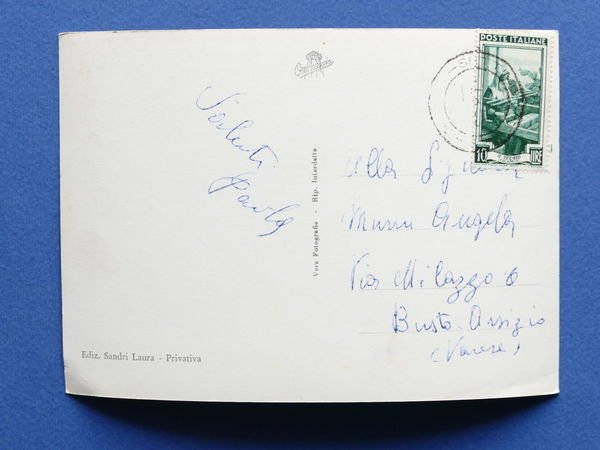 POSTE ITALIANE
10 LIRE
Saluti
Paola
Vera Fotografia - Rip. Interdetta
Alla
Angela
Via Milazzo 6
Busto-Arsizio
(Varese)
Ediz. Sandri Laura - Privativa